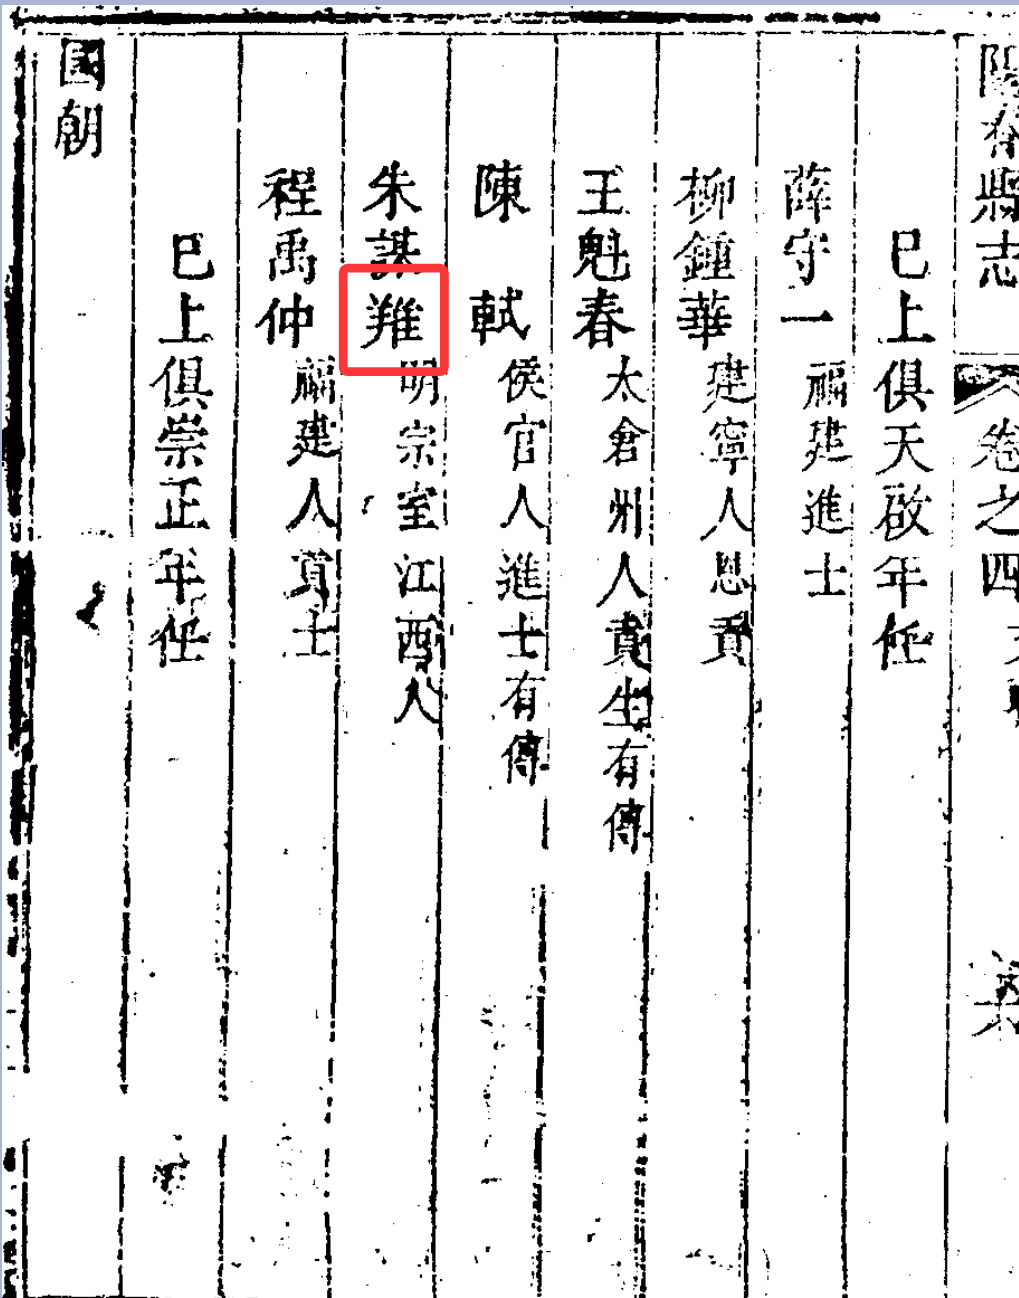 陽春縣志 卷之四
已上俱天啟年任
薛守一 福建進士
柳鍾華 建寧人恩貢
王魁春 太倉州人貢生有傳
陳軾 侯官人進士有傳
朱謀 明宗室江西人
程禹仲 福建人貢士
已上俱崇正年任
國朝